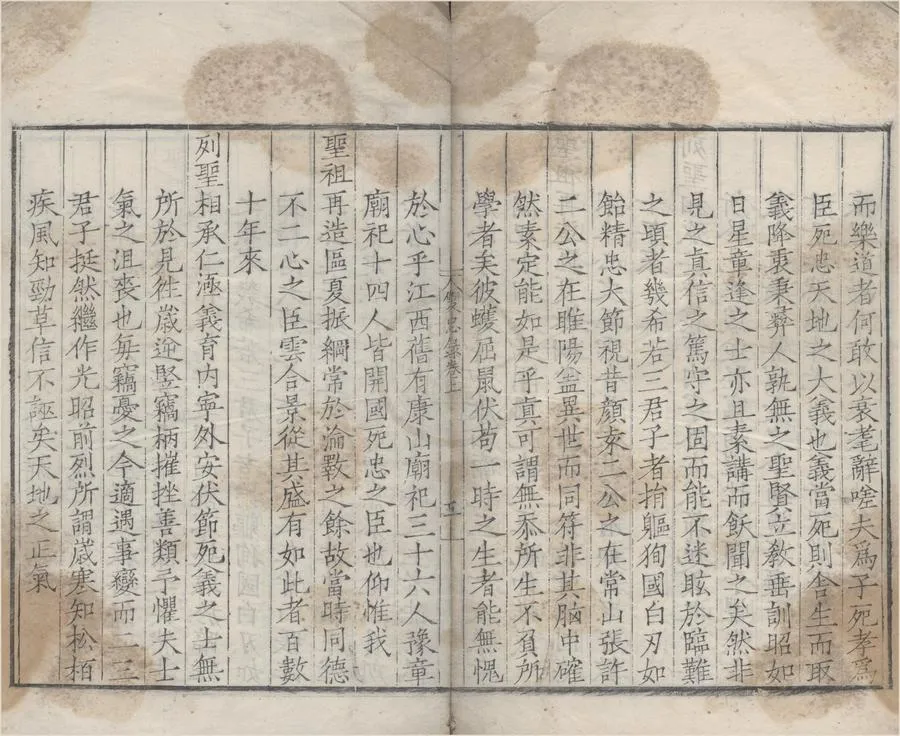 而樂道者何敢以衰耄辭嗟夫爲子死孝爲
臣死忠天地之大義也義當死則舍生而取
義降衷秉彝人孰無之聖賢立教垂訓昭如
日星童逢之士亦且素講而飫聞之矣然非
見之真信之篤守之固而能不迷眩於臨難
之頃者幾希若三君子者捐軀狥國白刃如
飴精忠大節視昔顏袁二公之在常山張許
二公之在睢陽益異世而同符非其胸中確
然素定能如是乎真可謂無忝所生不負所
學者矣彼蠖屈鼠伏苟一時之生者能無愧
雙忠錄卷上
於心乎江西舊有康山廟祀三十六人豫章
廟祀十四人皆開國死忠之臣也仰惟我
聖祖再造區夏振綱常於淪斁之餘故當時同德
不二心之臣雲合景從其盛有如此者百數
十年來
列聖相承仁涵義育内寧外安伏節死義之士無
所於見徃歲逆豎竊柄摧挫善類予懼夫士
氣之沮喪也每竊憂之今適遇事變而二三
君子挺然繼作光昭前烈所謂歲寒知松栢
疾風知勁草信不誣矣天地之正氣